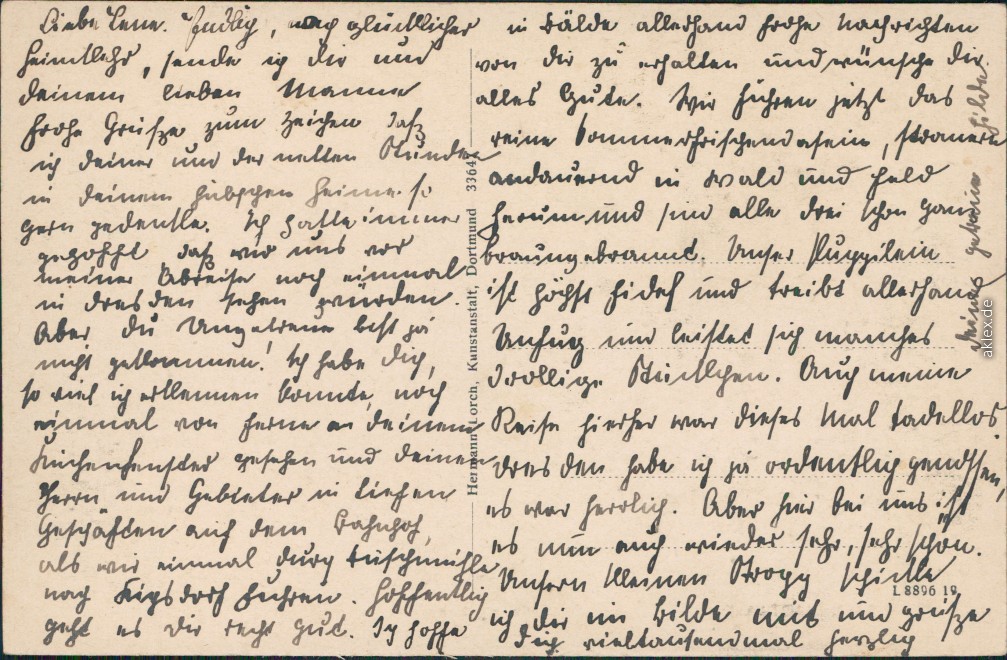 Liebe Lene. Endlich, nach glücklicher
Heimkehr, sende ich dir und
deinem lieben Manne
frohe Grüsze zum Zeichen dasz
ich deiner und der netten Stunden
in deinem hübschen Heime so
gern gedenke. Ich hatte immer
gehofft dasz wir uns vor
meiner Abreise noch einmal
in Dresden sehen würden.
Aber du Ungetreue bist ja
nicht gekommen! Ich habe dich,
so viel ich erkennen konnte, noch
einmal von Ferne an deinem
Küchenfenster gesehen und deinen
Herrn und Gebieter in tiefen
Geschäften auf dem Bahnhof,
als wir einmal durch Buschmühle
nach Kipsdorf fuhren. Hoffentlich
geht es dir recht gut. Ich hoffe
in Bälde allerhand frohe Nachrichten
von dir zu erhalten und wünsche dir
alles Gute. Wir führen jetzt das
reine Sommerfrischendasein, stromern
andauernd in Wald und Feld
herum und sind alle drei schon ganz
braungebrannt. Unser Puppilein
ist höchst fidel und treibt allerhand
Unfug und leistet sich manches
drollige Stückchen. Auch meine
Reise hierher war dieses Mal tadellos.
Dresden habe ich ja ordentlich genossen,
es war herrlich. Aber hier bei uns ist
es nun auch wieder sehr, sehr schön.
Unsern kleinen Stropp schicke
ich dir im Bilde mit und grüsze
dich vieltausendmal herzlich
Deine getreue Hilde
Hermann Lorch, Kunstanstalt, Dortmund 3364
L 8896 19
aklex.de